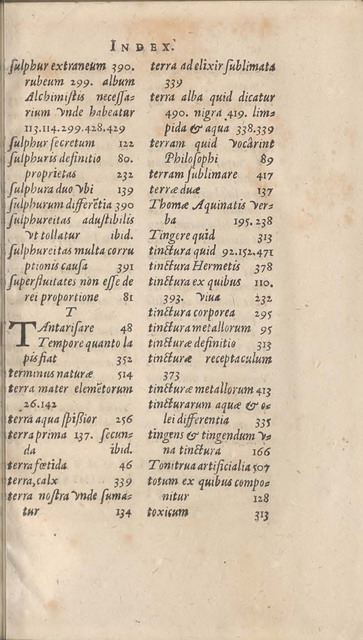 INDEX.
sulphur extraneum 390.
rubeum 299. album
Alchimistis necessa-
rium vnde habeatur
113.114.299.428.429
sulphur secretum 122
sulphuris definitio 80.
proprietas 232
sulphura duo vbi 139
sulphurum differētia 390
sulphureitas adustibilis
vt tollatur ibid.
sulphureitas multa corru
ptionis causa 391
superfluitates non esse de
rei proportione 81
T
TAntarisare 48
Tempore quanto la
pis fiat 352
terminus naturæ 514
terra mater elemētorum
26.142
terra aqua spissior 256
terra prima 137. secun-
da ibid.
terra fœtida 46
terra, calx 339
terra nostra vnde suma-
tur 134
terra ad elixir sublimata
339
terra alba quid dicatur
490. nigra 419. lim-
pida & aqua 338.339
terram quid vocârint
Philosophi 89
terram sublimare 417
terræ duæ 137
Thomæ Aquinatis ver-
ba 195.238
Tingere quid 313
tinctura quid 92.152.471
tinctura Hermetis 378
tinctura ex quibus 110.
393. viua 232
tinctura corporea 295
tinctura metallorum 95
tincturæ definitio 313
tincturæ receptaculum
373
tincturæ metallorum 413
tincturarum aquæ & o-
lei differentia 335
tingens & tingendum v-
na tinctura 166
Tonitrua artificialia 507
totum ex quibus compo-
nitur 128
toxicum 313